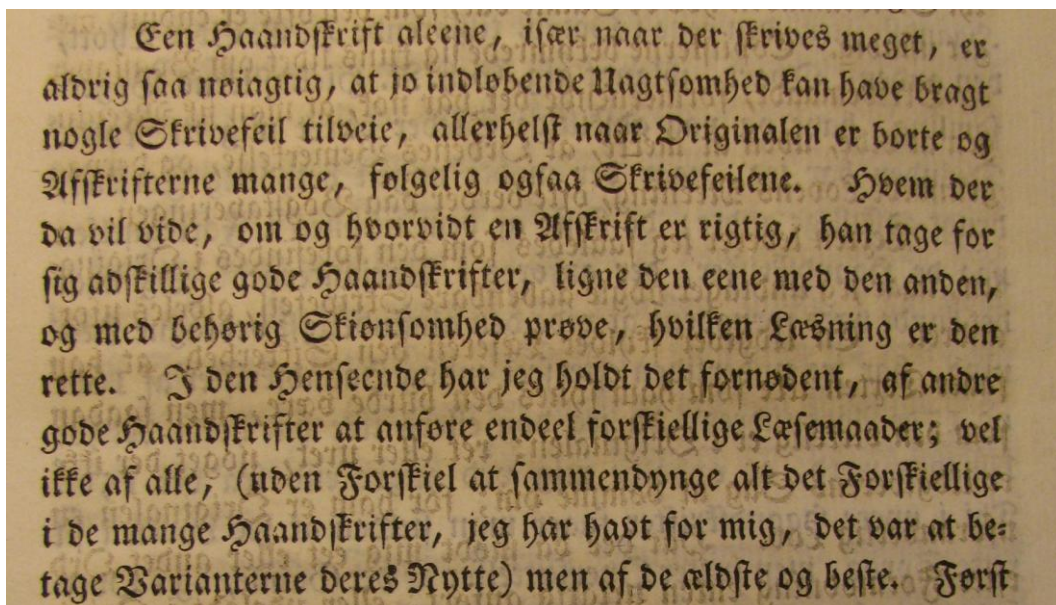 Een Haandskrift aleene, især naar der skrives meget, er
aldrig saa nøiagtig, at jo indløbende Uagtsomhed kan have bragt
nogle Skrivefeil tilveie, allerhelst naar Originalen er borte og
Afskrifterne mange, følgelig ogsaa Skrivefeilene. Hvem der
da vil vide, om og hvorvidt en Afskrift er rigtig, han tage for
sig adskillige gode Haandskrifter, ligne den eene med den anden,
og med behørig Skiønsomhed prøve, hvilken Læsning er den
rette. I den Henseende har jeg holdt det fornødent, af andre
gode Haandskrifter at anføre endeel forskiellige Læsemaader; vel
ikke af alle, (uden Forskiel at sammendynge alt det Forskiellige
i de mange Haandskrifter, jeg har havt for mig, det var at be-
tage Varianterne deres Nytte) men af de ældste og beste. Først